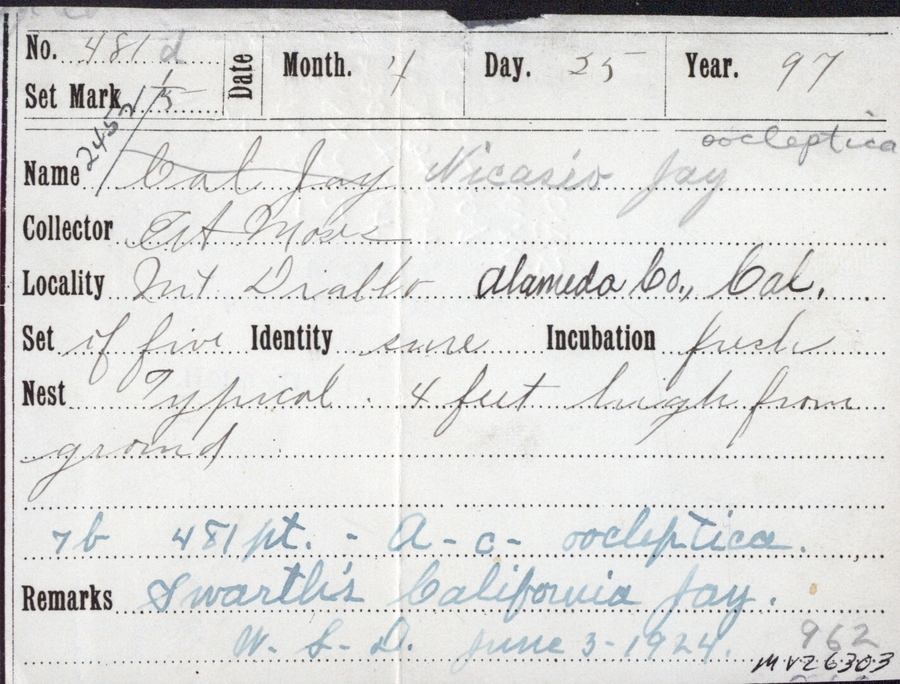 No. 481 d Date Month. 4 Day. 25 Year. 97
Set Mark 1/5
2452
oocleptica
Name Cal Jay Nicasio Jay
Collector
Locality Mt Diablo Alameda Co., Cal.
Set of five Identity sure Incubation fresh
Nest Typical. 4 feet high from
ground
7b 481 pt. - A - c - oocleptica.
Remarks Swarth's California Jay.
W. S. D. June 3 - 1924.
962
MVZ6303